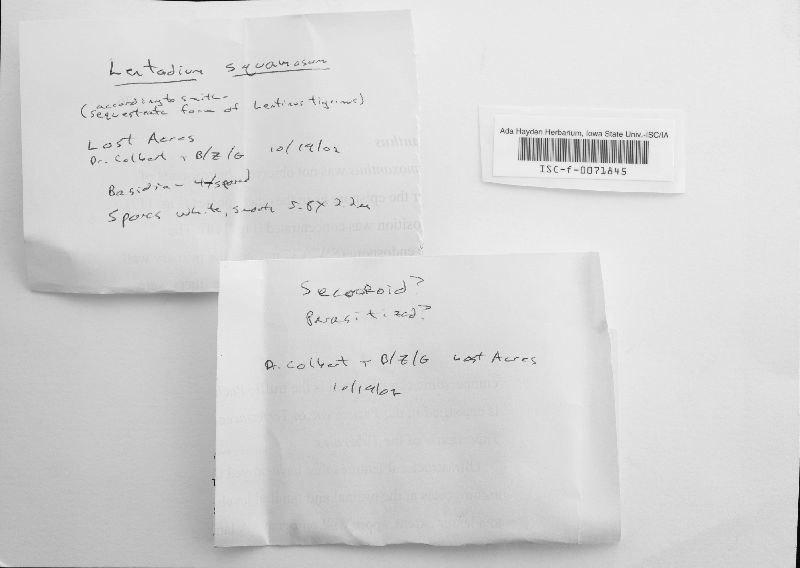 Lentodium squamosum
(according to Smith-
sequestrate form of Lentinus tigrinus)
Lost Acres
Dr. Colbert + B/Z/G 10/19/02
Basidia - 4/spored
Spores white, smooth 5-8 X 2.2µ
Ada Hayden Herbarium, Iowa State Univ.-ISC/IA
ISC-f-0071845
Secotioid?
Parasitized?
Dr. Colbert + B/Z/G Lost Acres
10/19/02